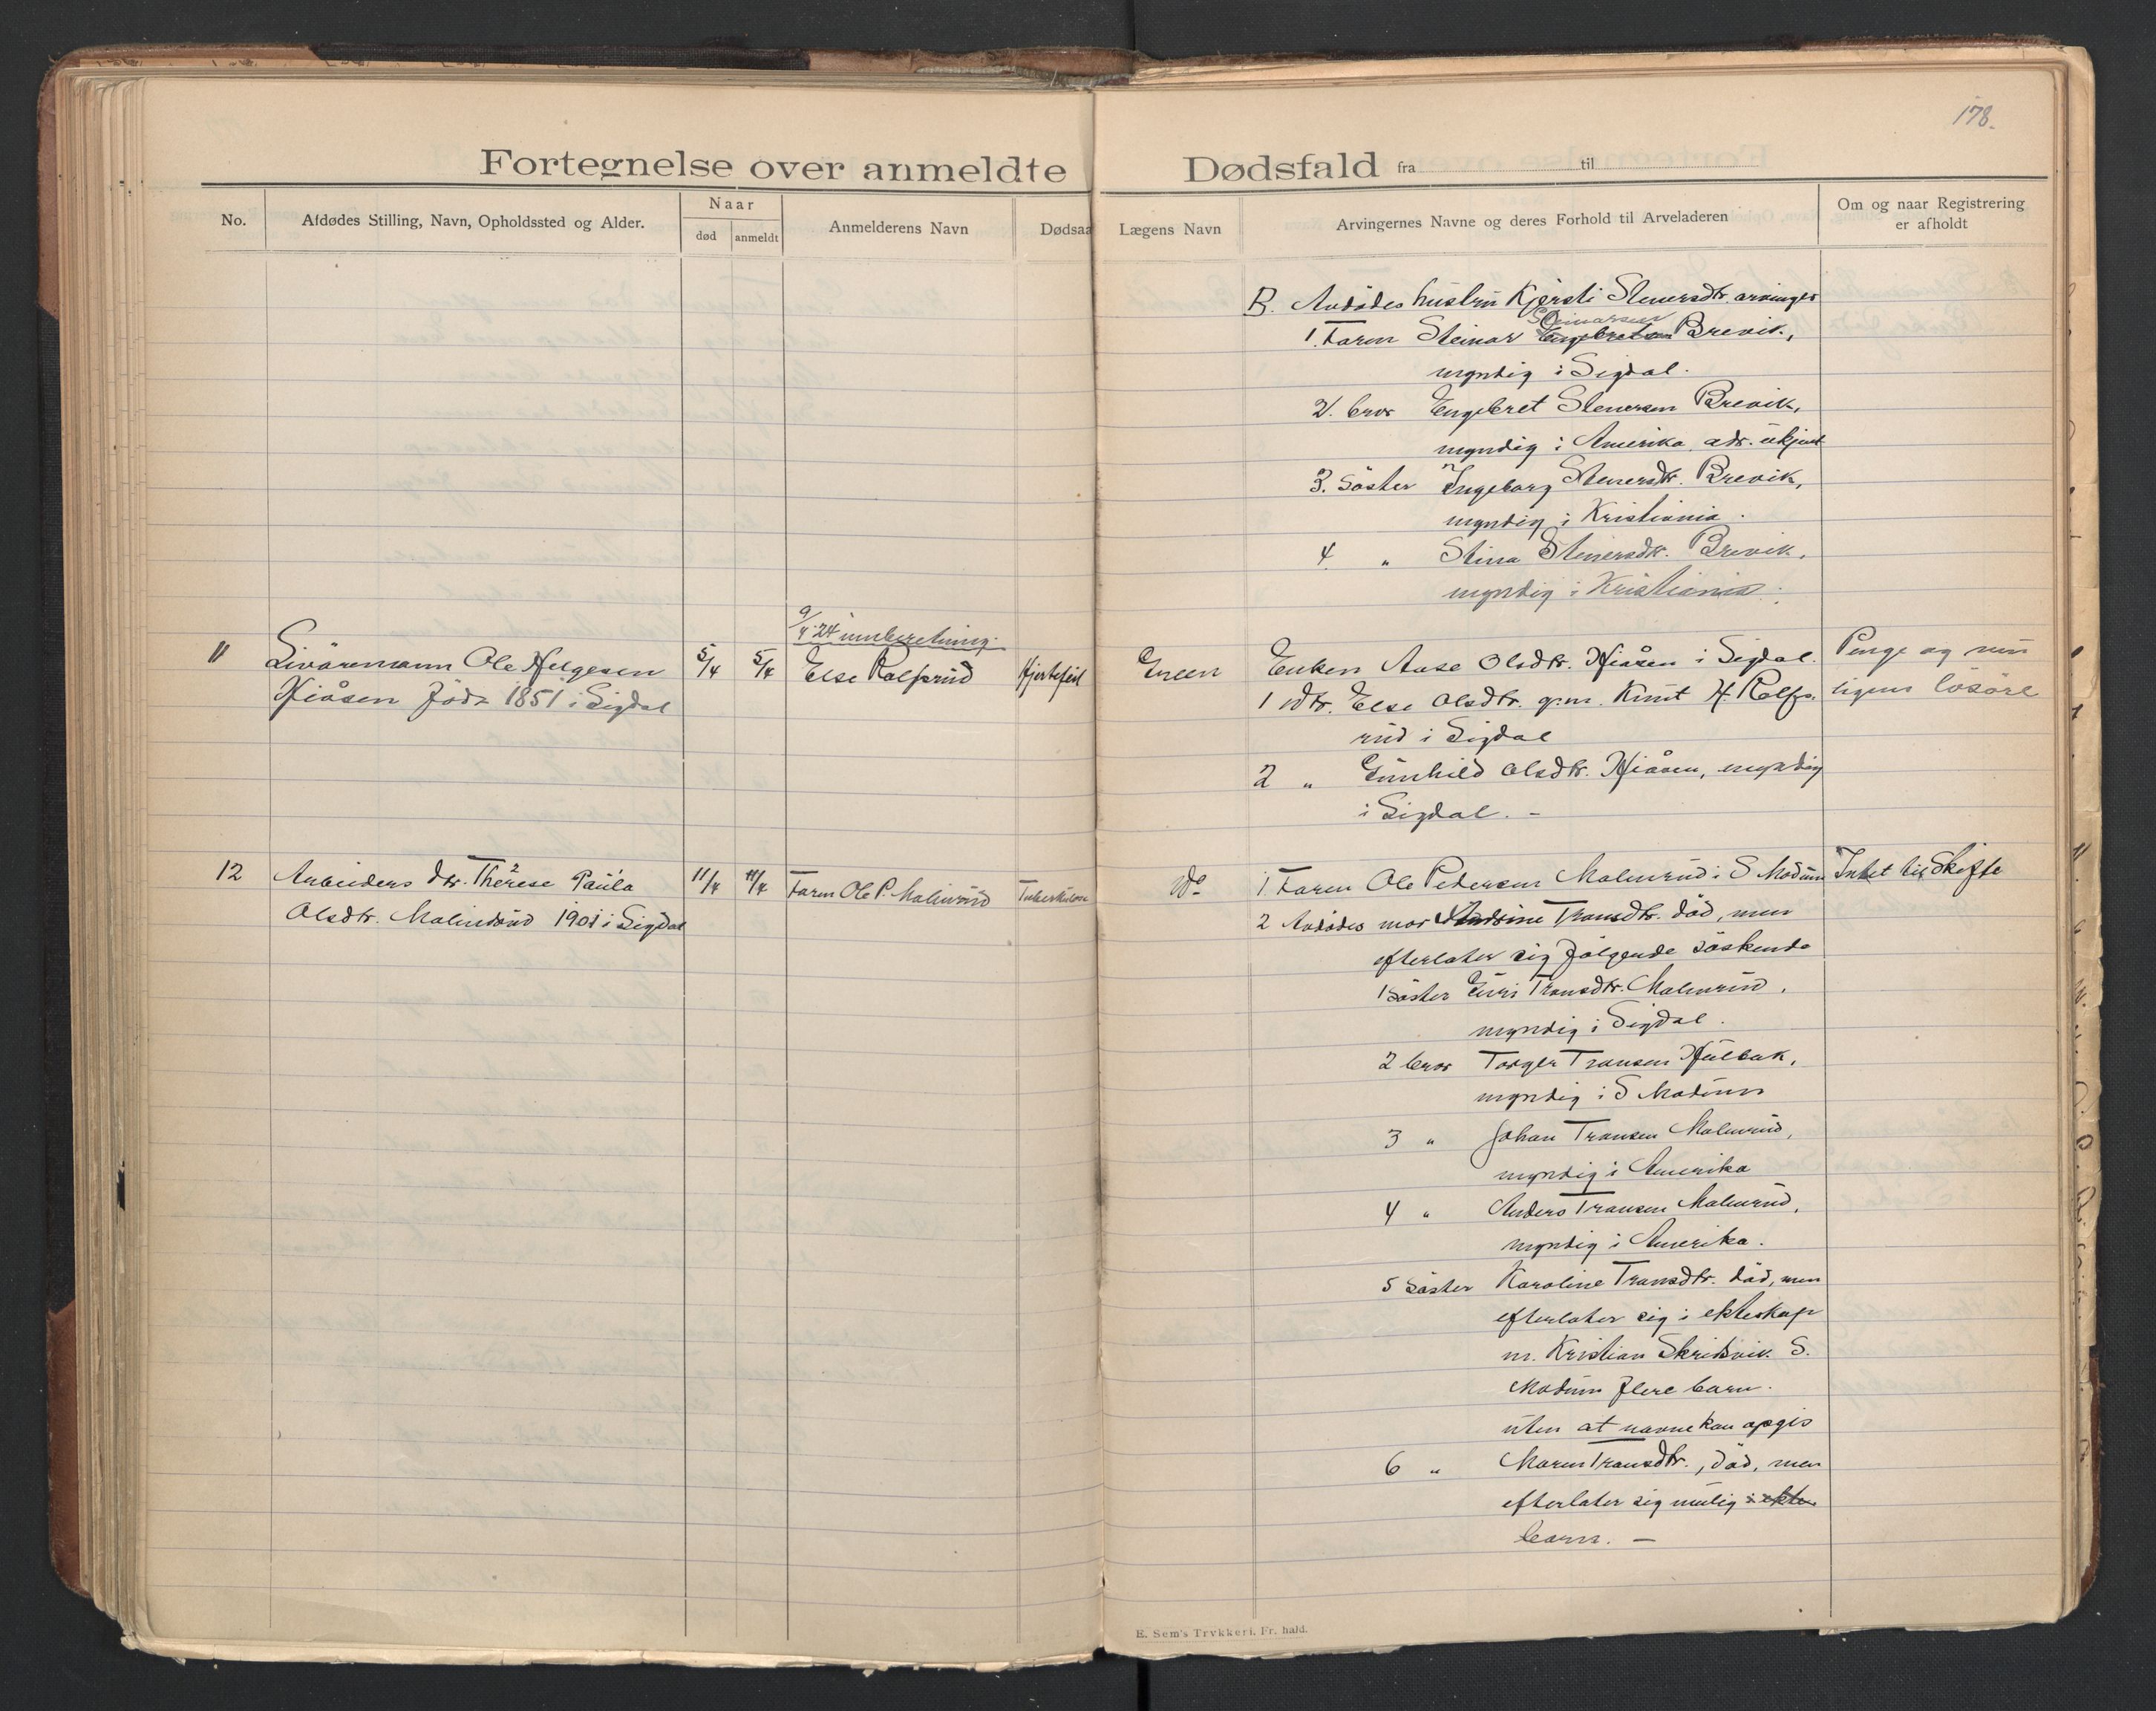 178.
Fortegnelse over anmeldte Dødsfald fra til
No.
Afdødes Stilling, Navn, Opholdssted og Alder.
Naar
død anmeldt
Anmelderens Navn
Dødsaa
Lægens Navn
Arvingernes Navne og deres Forhold til Arveladeren
Om og naar Registrering
er afholdt
B. Avdödes hustru Kjersti Stenersdtr. arvinger
Steinarsen
1. Faren Steinar Engebretsen Brevik,
myndig i Sigdal.
2. bror Engebret Stenersen Brevik,
myndig i Amerika adr. ukjent
3. Söster Ingeborg Stenersdtr. Brevik,
myndig i Kristiania.
4. " Stina Stenersdtr. Brevik,
myndig i Kristiania.
9/4 24 innberetning.
11 Livöremann Ole Helgesen
Hiåsen föd 1851 i Sigdal
5/4 5/4 Else Kolfsrud Hjertefeil
Ingen
Enken Aase Olsdtr. Hiåsen i Sigdal.
1 dtr. Else Olsdtr. g.m. Knut H. Kolfs-
rud i Sigdal
2 " Gunhild Olsdtr. Hiåsen, myndig
i Sigdal. -
Penge og
lösöre
12 Arbeiders dtr. Therese Paula
Olsdtr. Malmrud 1901 i Sigdal
11/4 11/4 Faren Ole P. Malmrud Tuberkulose
do
1 Faren Ole Pedersen Malmrud i S. Modum
2 Avdödes mor Andrine Transdtr. död, men
efterlater sig fölgende söskende
1 Söster Guri Transdtr. Malmrud,
myndig i Sigdal.
2 bror Torger Transen Hulbak,
myndig i S. Modum
3 " Johan Transen Malmrud,
myndig i Amerika
4 " Anders Transen Malmrud,
myndig i Amerika.
5 Söster Karoline Transdtr. död, men
efterlater sig i ekteskap
m. Kristian Skridsvik. S.
Modum flere barn.
uten at navne kan opgis
6 " Maren Transdtr., död, men
efterlater sig mulig i ekte
barn. -
Intet til Skifte
E. Sem's Trykkeri. Fr. hald.